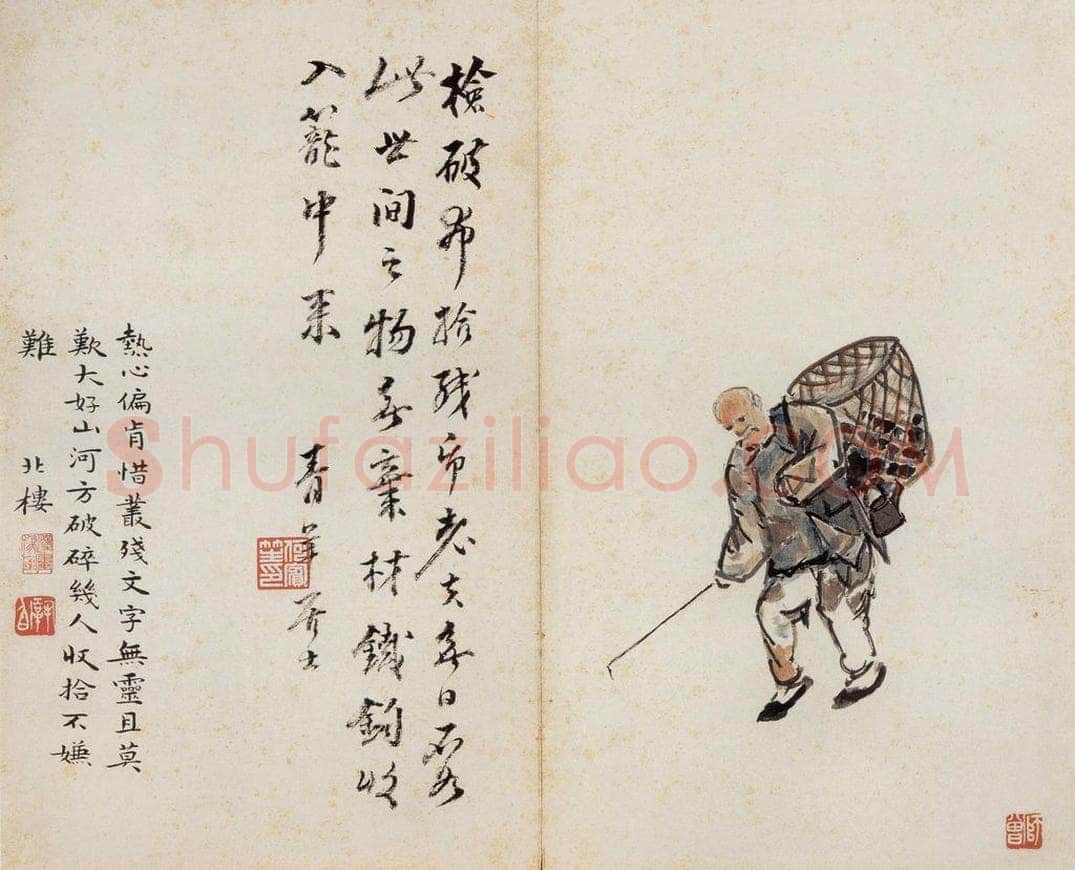 檢破布拾殘帋老夫無日不為
此世間之物無棄材鐵鈎收
入籠中來 青羊居士
熱心偏肯惜叢殘文字無靈且莫
歎大好山河方破碎幾人收拾不嫌
難 北樓
師曾
Shufaziliao.com